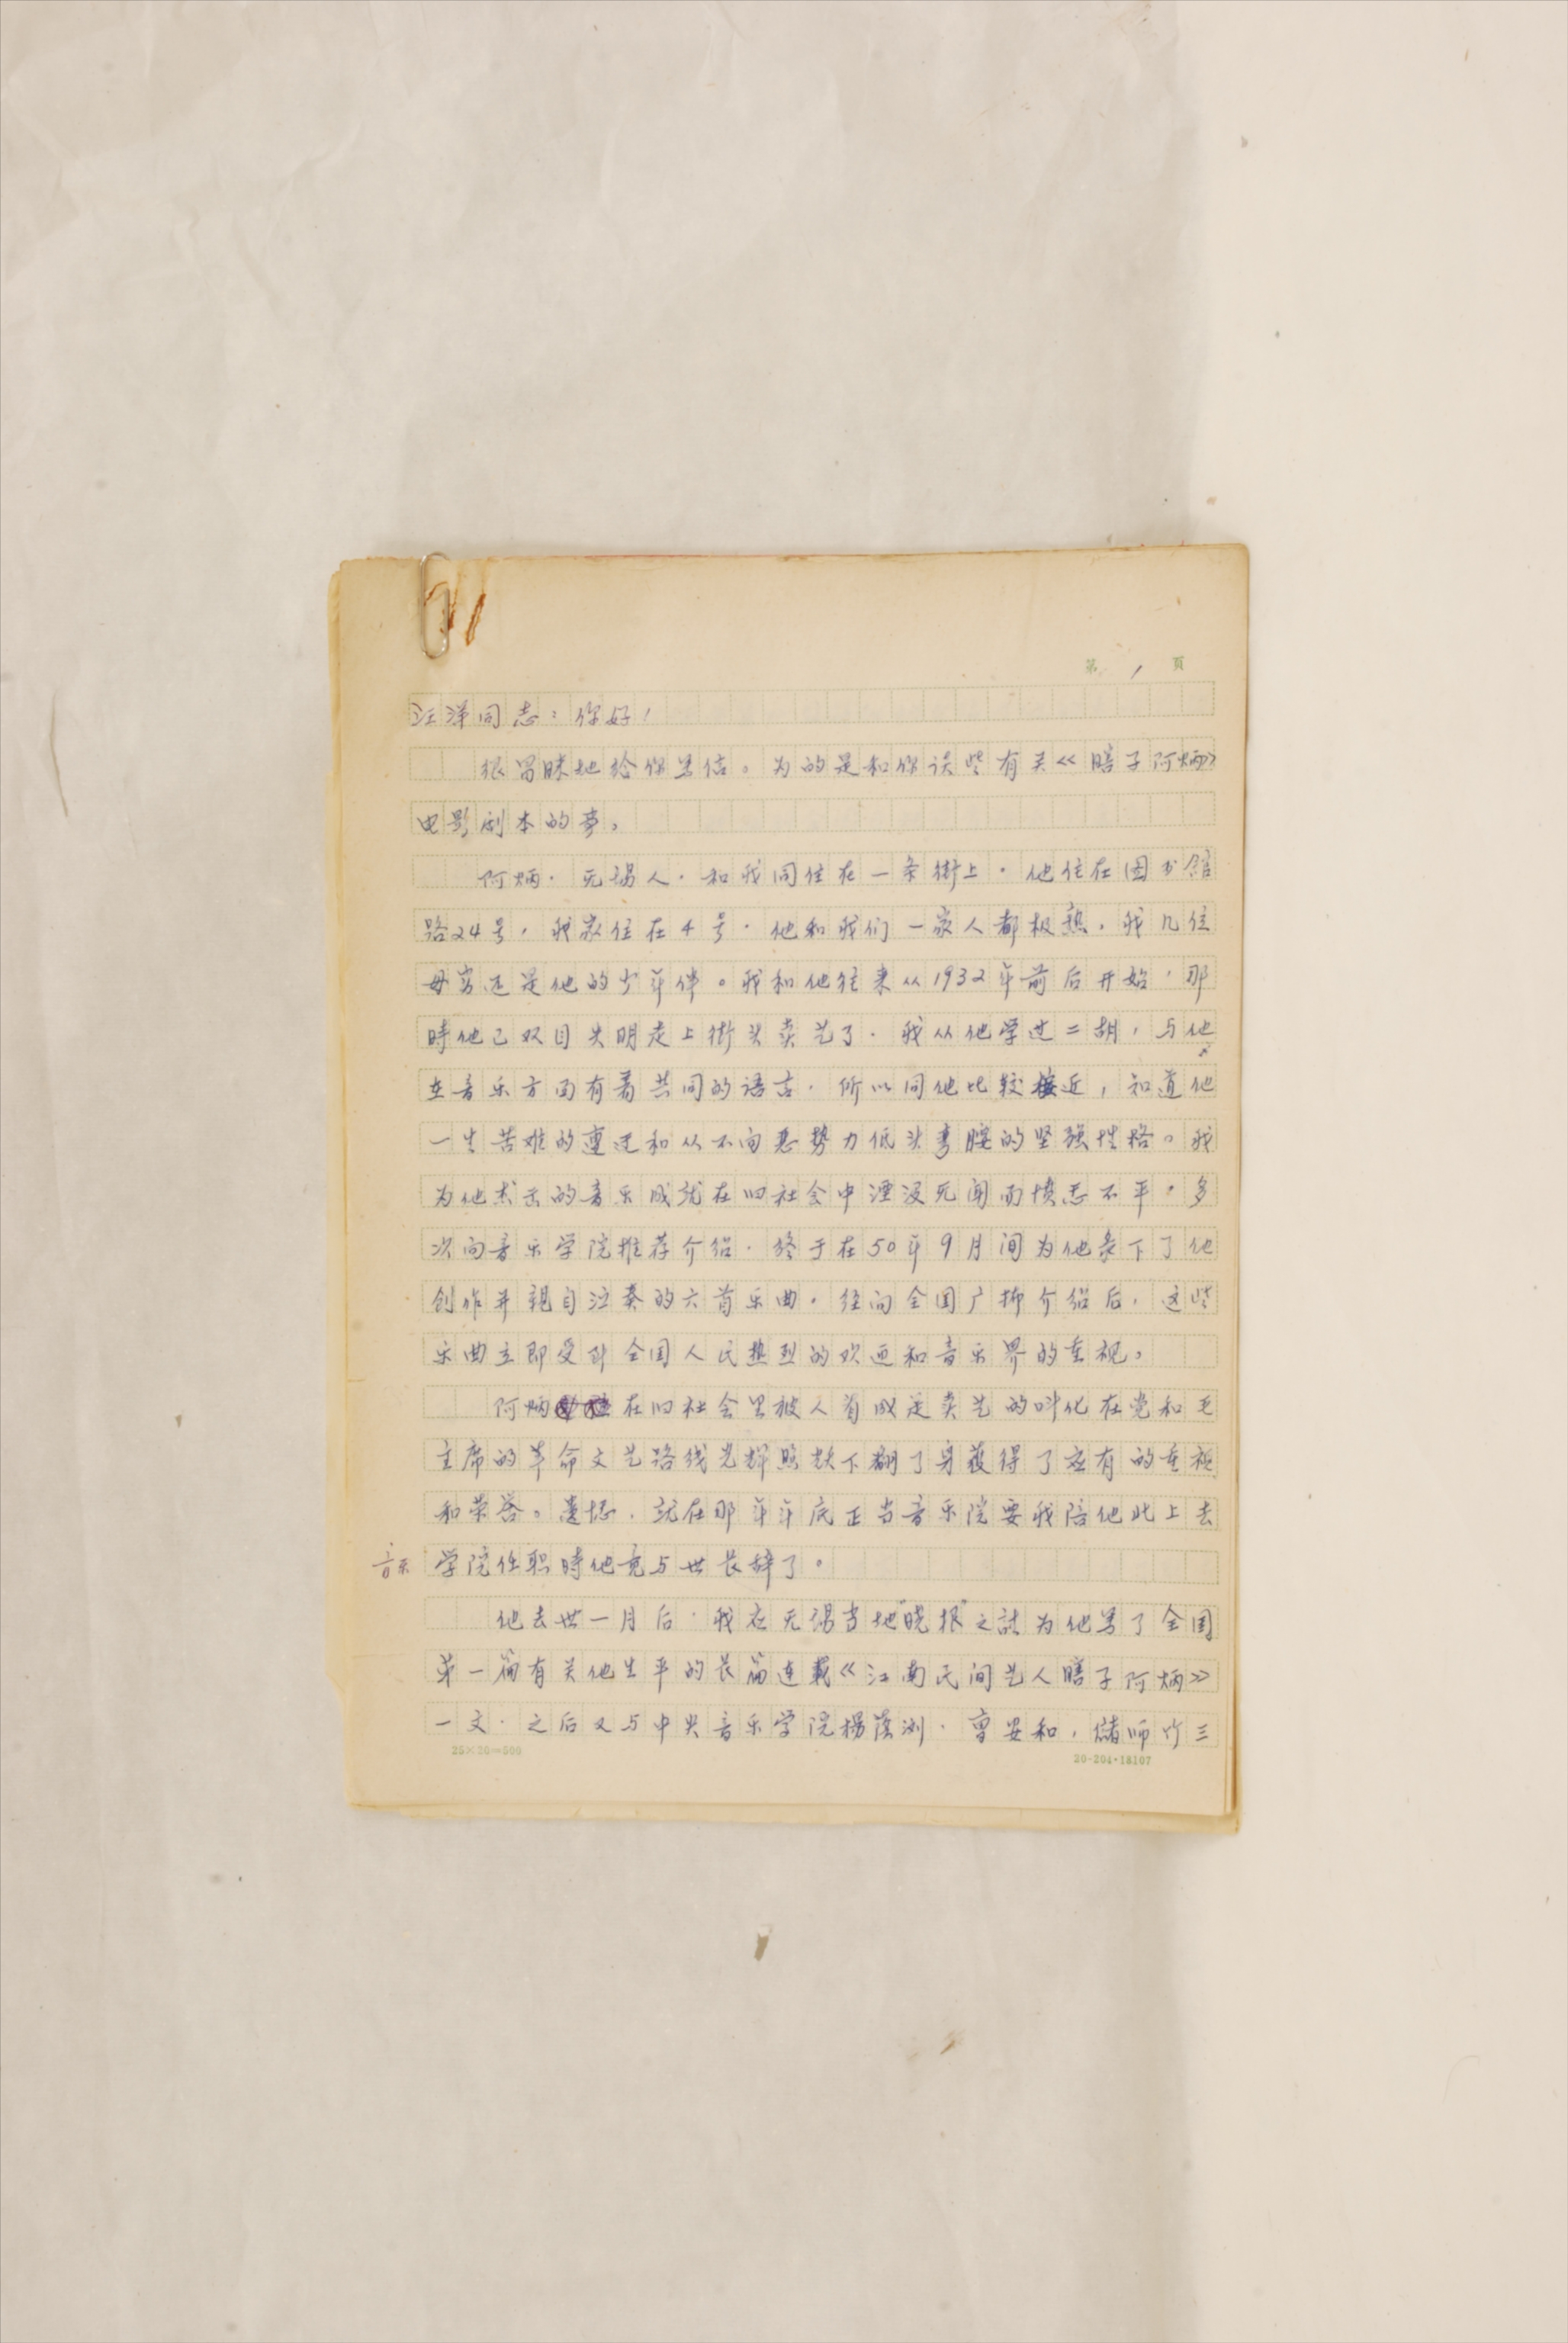 第 1 頁
汪洋同志：你好！
很冒昧地给你写信。为的是和你谈些有关《瞎子阿炳》
电影剧本的事。
阿炳，无锡人，和我同住在一条街上，他住在图书馆
路24号，我家住在4号，他和我们一家人都极熟，我几位
母舅还是他的少年伴。我和他往来从1932年前后开始，那
時他已双目失明走上街头卖艺了。我从他学过二胡，与他
在音乐方面有着共同的语言，所以同他比较接近，知道他
一生苦难的遭遇和从不向恶势力低头弯腰的坚强性格。我
为他杰出的音乐成就在旧社会中湮没无闻而愤恚不平，多
次向音乐学院推荐介绍，终于在50年9月间为他录下了他
创作并親自演奏的六首乐曲。经向全国广播介绍后，这些
乐曲立即受到全国人民热烈的欢迎和音乐界的重视。
阿炳在旧社会里被人看成是卖艺的叫化在党和毛
主席的革命文艺路线光辉照耀下翻了身獲得了应有的重视
和荣誉。遗憾，就在那年年底正当音乐院要我陪他北上去
音乐 学院任职時他竟与世长辞了。
他去世一月后，我应无锡当地"晓报"之請为他写了全国
第一篇有关他生平的长篇连载《江南民间艺人瞎子阿炳》
一文，之后又与中央音乐学院楊荫浏，曹安和，儲师竹三
25×20=500
20-204·18107